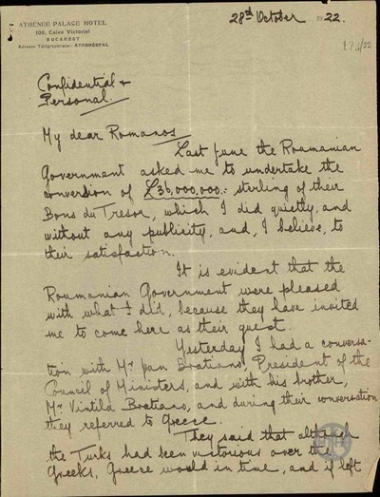 ATHÉNÉE PALACE HOTEL
108, Calea Victoriei
BUCAREST
Adresse Télégraphique: ATHENEEPAL
28th October 1922.
Confidential &
Personal.
My dear Romanos
Last June the Roumanian
Government asked me to undertake the
conversion of £36,000,000:- sterling of their
Bons du Tresor, which I did quietly, and
without any publicity, and, I believe, to
their satisfaction.
It is evident that the
Roumanian Government were pleased
with what I did, because they have invited
me to come here as their guest.
Yesterday I had a conversa-
tion with Mr Jan Bratiano, President of the
Council of Ministers, and with his brother,
Mr Vintila Bratiano, and during their conversation
they referred to Greece.
They said that although
the Turks had been victorious over the
Greeks, Greece would in time, and if left